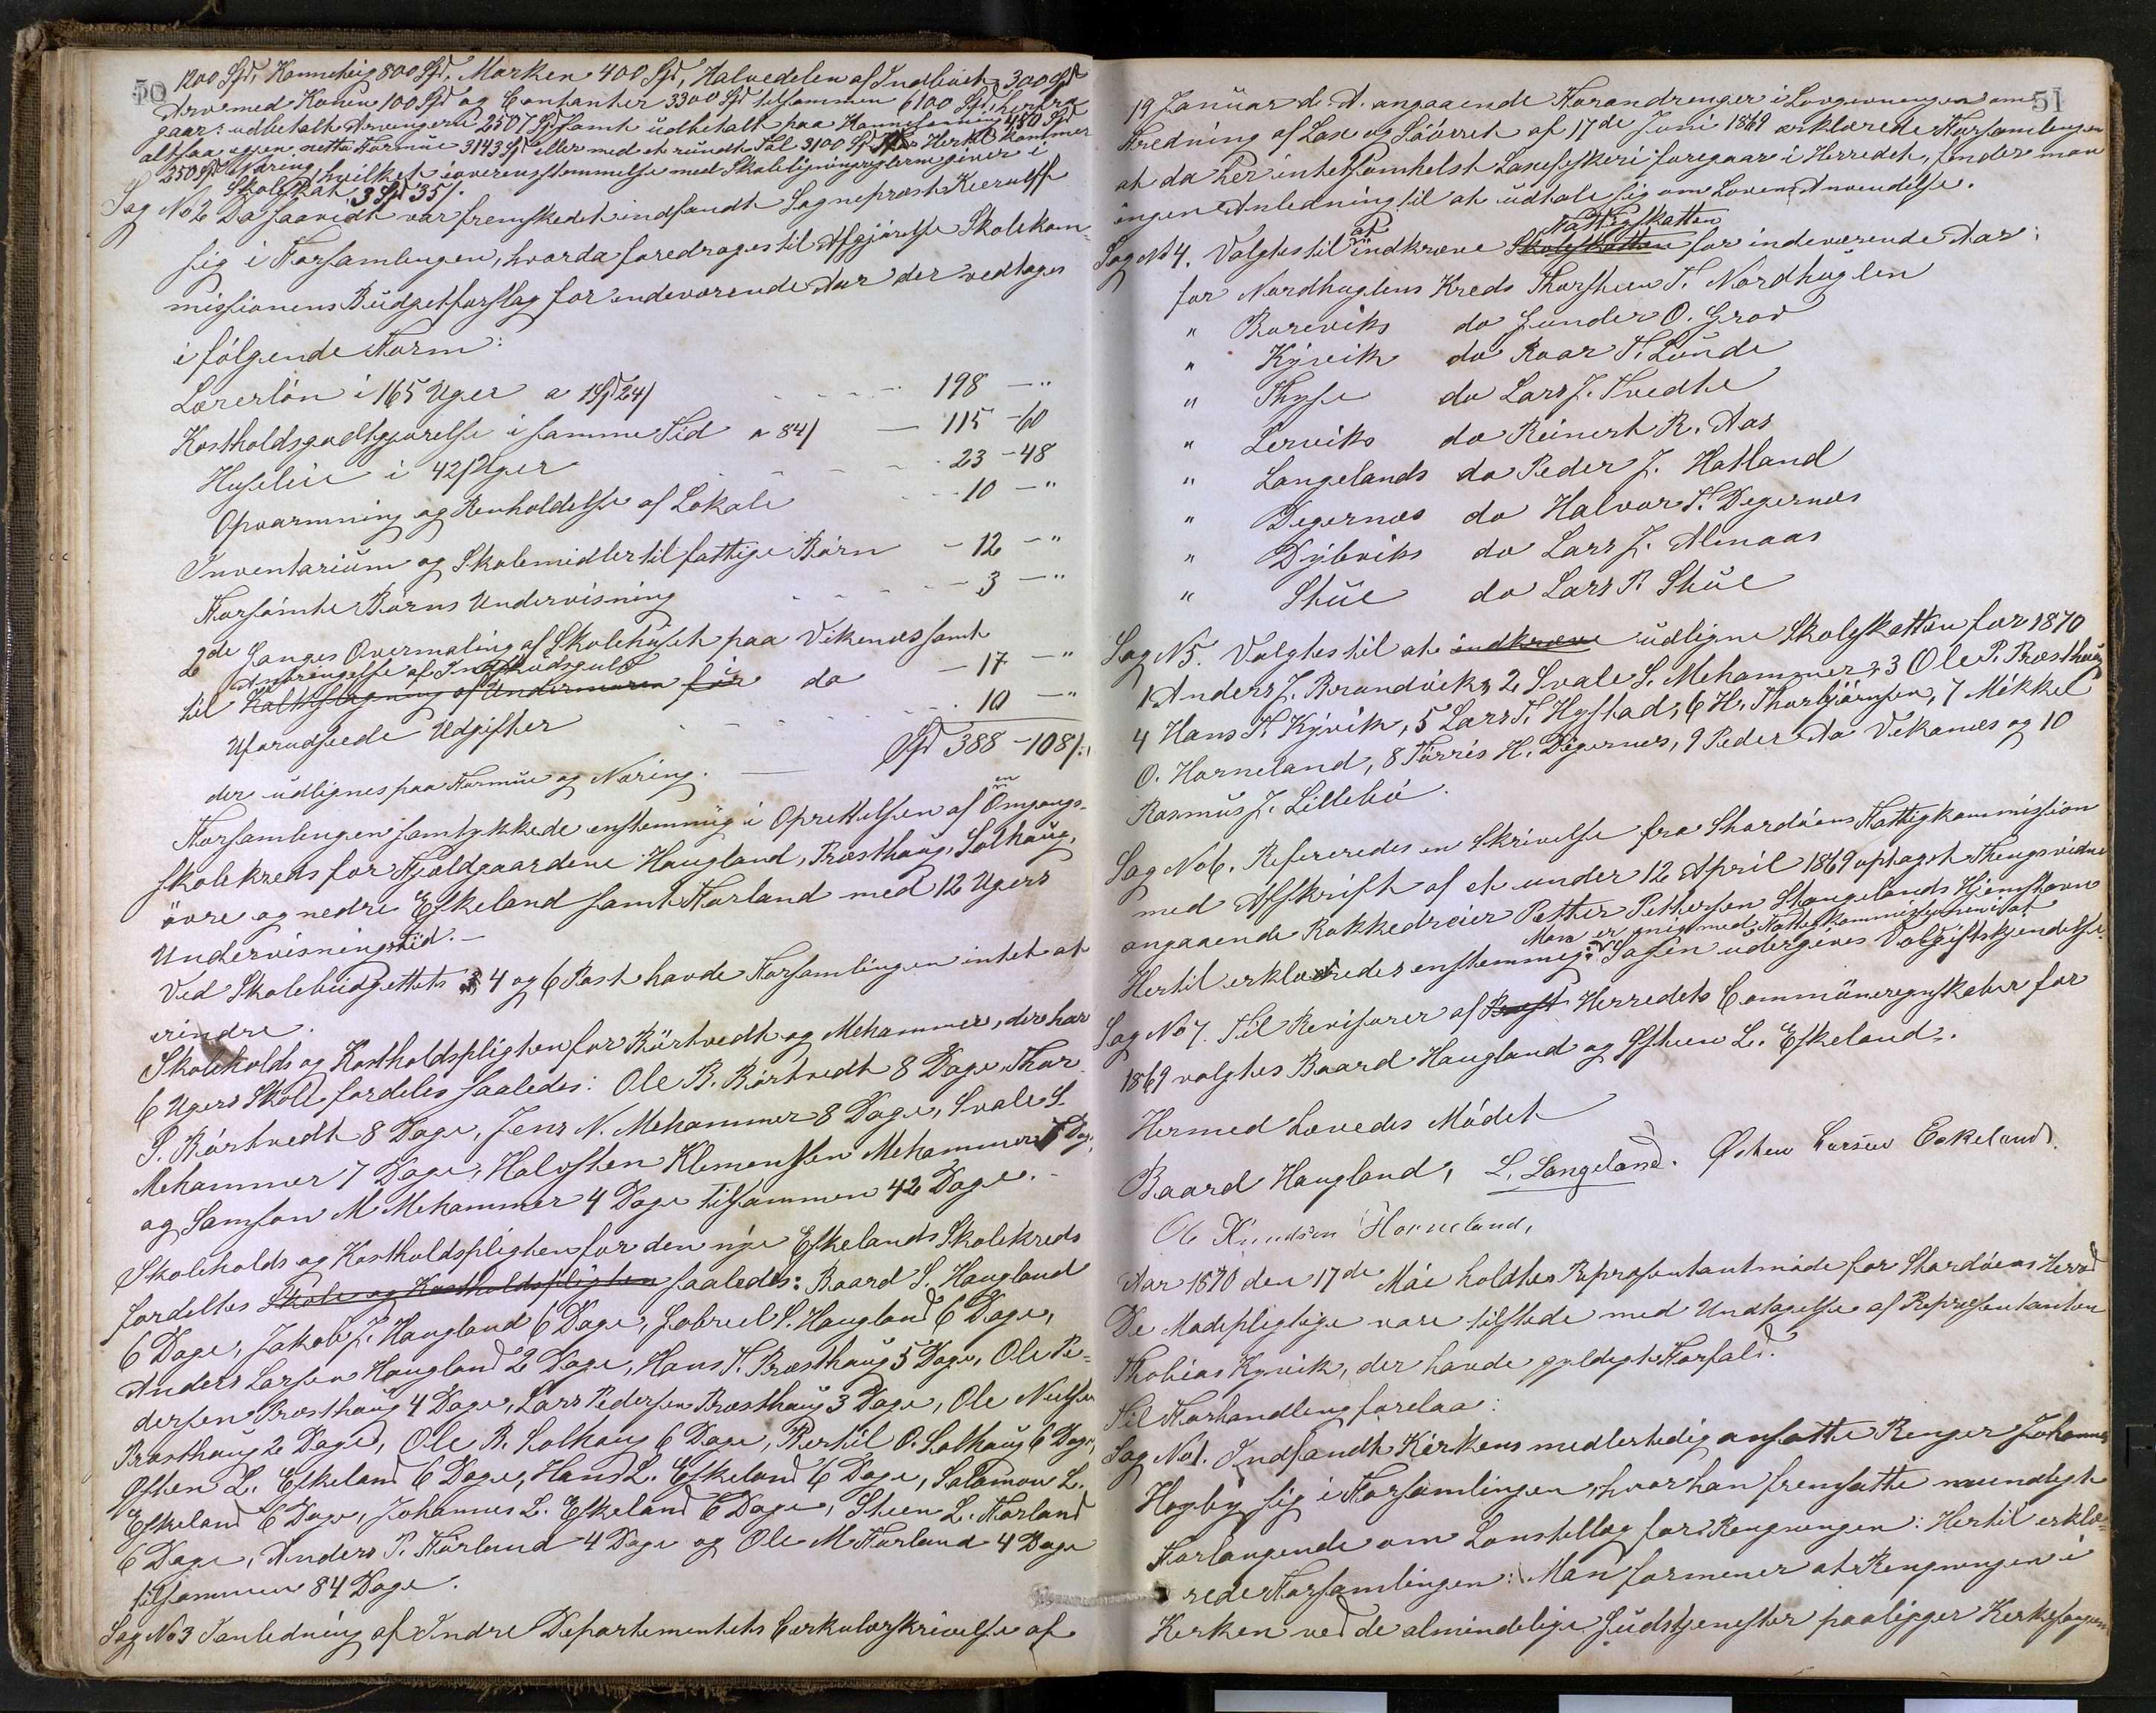 50
1200 Spd, Kannehig 800 Spd, Marken 400 Spd, Halvedelen af Indbich 300 Spd
Arv med Konen 100 Spd og Contanter 3300 Spd tilsammen 6100 Spd, herfra
gaar: udbetalt Arvingerne 2507 Spd samt udbetalt paa 450 Spd
altsaa egen netto Formue 3143 Spd eller med et rundt Tal 3100 Spd. Hertil kommer
250 Spd Næring, hvilket i overensstemmelse med Skoleligningsreglerne giver i
Skoleskat 3 Spd 35 /.
Sag No 2 Da saavidt var fremskedet indfandt Sogneprest Kierulff
sig i Forsamlingen, hvorda foredroges til Afgjörelse Skolekom-
missionens Budgetforslag for indeværende Aar der vedtoges
i fölgende Form:
Lærerlön i 165 Uger a 1 Spd 24 / - - - 198 - "
Kostholdsgodtgjörelse i samme Tid a 84 / - 115 - 60
Husleie i 42 / Uger - - - 23 - 48
Opvarmning og Renholdelse af Lokale - - 10 - "
Inventarium og Skolemidler til fattige Börn - 12 - "
Forsömte Börns Undervisning - - - 3 - "
2de Ganges Overmaling af Skolehuset paa Vikenæs samt
Anbringelse af Indskudsgulv
til Kalkslagning af Undermuren for i do - 17 - "
Uforudseede Udgifter - - - 10 - "
Spd 388 - 108 /.
der udlignes paa Formue og Næring.
en
Forsamlingen samtykkede enstemmig i Oprettelsen af Omgangs-
skolekreds for Fjeldgaardene Haugland, Præsthaug, Solhaug,
övre og nedre Eskeland samt Forland med 12 Ugers
Undervisningstid. -
Ved Skolebudgettets 4 og 6 Post havde Forsamlingen intet at
erindre.
Skoleholds og Kostholdspligten for Börtvedt og Mehammer, der har
6 Ugers Skole fordeles saaledes: Ole B. Börtvedt 8 Dage, Thor
S. Börtvedt 8 Dage, Jens N. Mehammer 8 Dage, Svale S.
Mehammer 7 Dage, Halvsten Klemensen Mehammer 7 Dage,
og Samson M Mehammer 4 Dage tilsammen 42 Dage. -
Skoleholds og Kostholdspligten for den nye Eskelands Skolekreds
fordeltes Skole og Kostholdspligten saaledes: Baard S. Haugland
6 Dage, Jakob J. Haugland 6 Dage, Gabriel S. Haugland 6 Dage,
Anders Larsen Haugland 2 Dage, Hans T. Præsthaug 5 Dage, Ole Pe-
dersen Præsthaug 4 Dage, Lars Pedersen Præsthaug 3 Dage, Ole Nielsen
Præsthaug 2 Dage, Ole B. Solhaug 6 Dage, Bertil O. Solhaug 6 Dage,
Østen L. Eskeland 6 Dage, Hans L. Eskeland 6 Dage, Salamon L.
Eskeland 6 Dage, Johannes L. Eskeland 6 Dage, Steen L. Forland
6 Dage, Anders P. Forland 4 Dage og Ole M Forland 4 Dage
tilsammen 84 Dage.
Sag No 3 I anledning af Indre Departementets Cirkulærskrivelse af
51
19 Januar d. A. angaaende Forandringer i Lovgivningen om
Fredning af Lax og Söörret af 17de Juni 1869 erklærede Forsamlingen
at da her intetsomhelst Laxefiskeri foregaar i Herredet, finder man
ingen Anledning til at udtale sig om Lovens Anvendelse.
at Fattigskatten
Sag No 4. Valgtes til indkræve Skoleskatten for indeværende Aar:
for Nordhuglens Kreds Thorsteen T. Nordhuglen
" Boreviks do Gunder O. Grov
" Kyvik do Roar T. Lunde
" Thyse do Lars J. Tvedte
" Lerviks do Reinert R. Aas
" Langelands do Peder J. Hatland
" Degernæs do Halvor T. Degernæs
" Dybviks do Lars J. Almaas
" Stue do Lars P. Stue
Sag N 5. Valgtes til at indkræve udligne Skoleskatten for 1870
1 Anders J. Brandvik, 2 Svale S. Mehammer, 3 Ole P. Præsthaug
4 Hans T. Kyvik, 5 Lars T. Hystad, 6 H. Thorbjörnsen, 7 Mikkel
O. Horneland, 8 Törris H. Digernes, 9 Peder Aa Vikanæs og 10
Rasmus J. Lillebö.
Sag No 6. Refereredes en Skrivelse fra Stordöens Fattigkommission
med Afskrift af et under 12 April 1869 optaget Thingsvidne
angaaende Rokkedreier Petter Pettersen Stangelands Hjemstavn
Man er enig med Fattigkommissionen i at
Hertil erklæredes enstemmig: Sagen undergives Voldgiftskjendelse.
Sag No 7. Til Revisorer af Præst Herredets Communeregnskaber for
1869 valgtes Baard Haugland og Østeen L. Eskeland.
Hermed hævedes Mödet
Baard Haugland, L. Langeland. Østen Larsen Eskeland.
Ole Knudsen Horneland,
Aar 1870 den 17de Mai holdtes Repræsentantmöde for Stordöens Herred
De Mödepligtige vare tilstede med Undtagelse af Repræsentanten
Thobias Kyvik, der havde gyldigt Forfald.
Til Forhandling forelaa:
Sag No 1. Indfandt Kirkens midlertidig ansatte Ringer Johannes
Hogby sig i Forsamlingen, hvor han fremsatte mundtligt
Forlangende om Lønstillæg for Ringningen: Hertil erklæ-
rede Forsamlingen: Man formener at Ringningen i
Kirken ved de almindelige Gudstjenester paaligger Kirkesanger